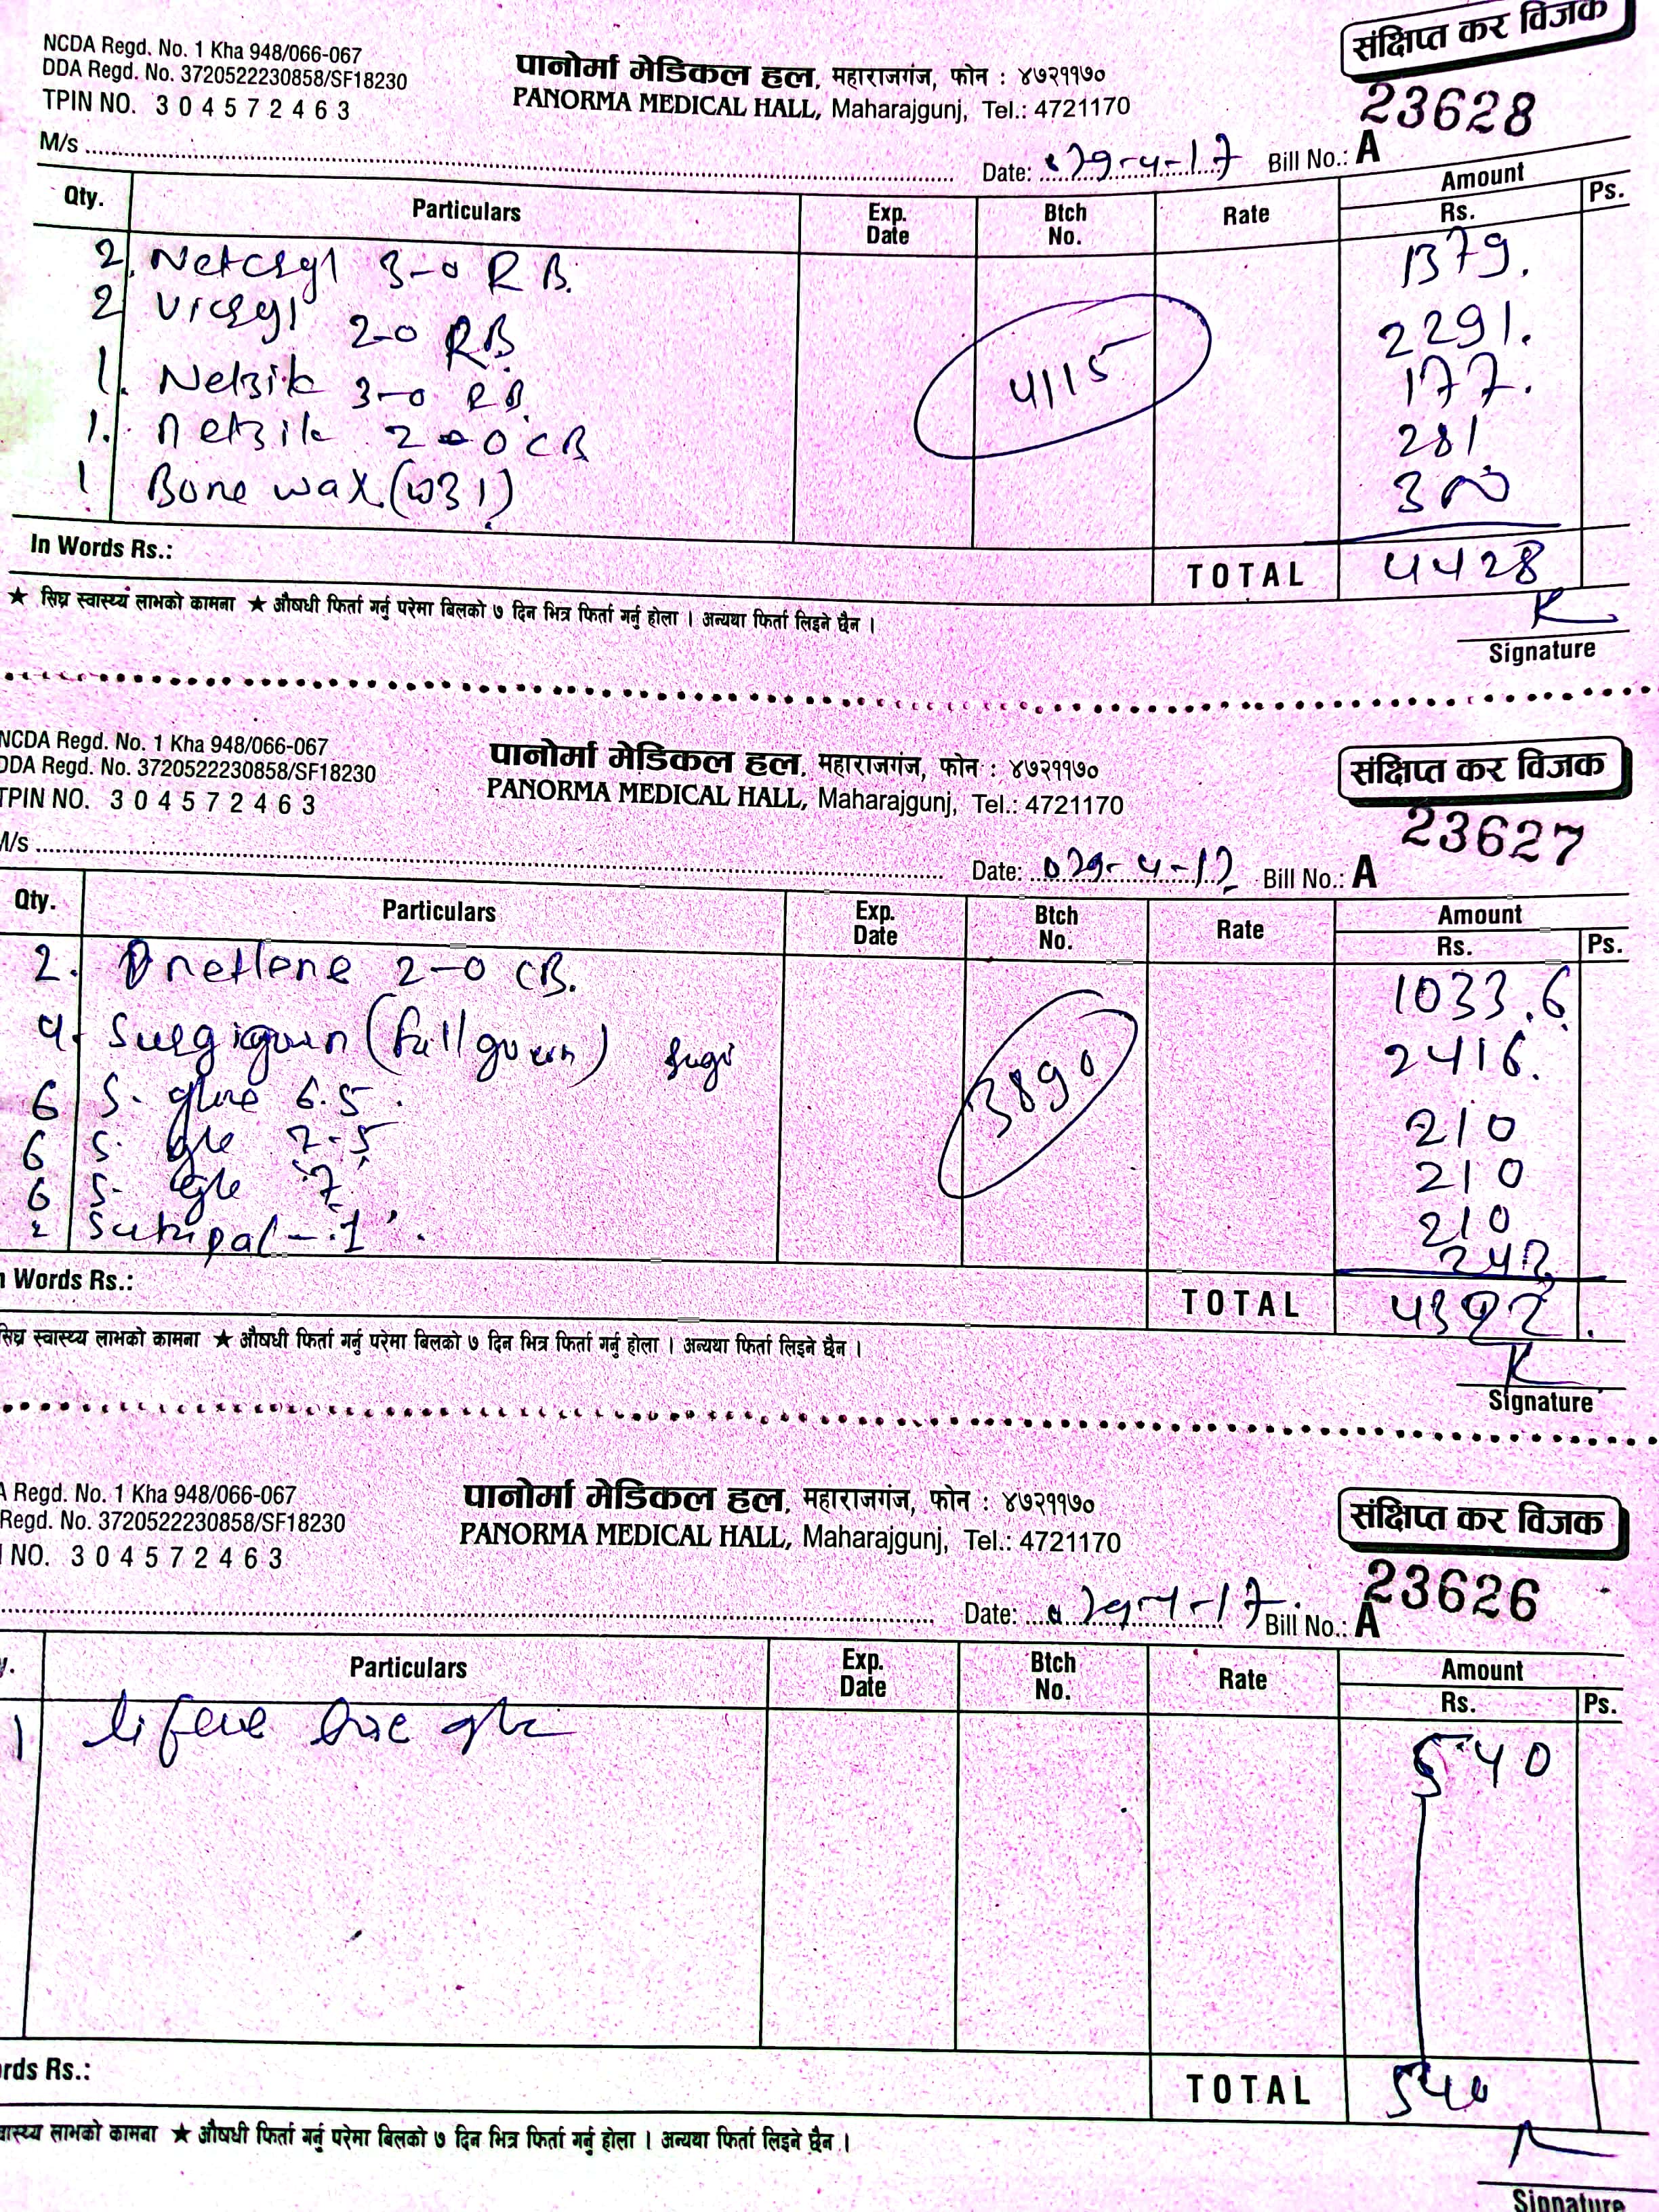 संक्षिप्त कर विजक
NCDA Regd. No. 1 Kha 948/066-067
DDA Regd. No. 3720522230858/SF18230
TPIN NO. 3 0 4 5 7 2 4 6 3
पानोर्मा मेडिकल हल, महाराजगंज, फोन : ४७२११७०
PANORMA MEDICAL HALL, Maharajgunj, Tel.: 4721170
23628
M/s
Date: 079-4-17 Bill No.: A
Qty. Particulars Exp. Date Btch No. Rate Amount Rs. Ps.
2. Netcryl 3-0 RB. 1379.
2 Vicryl 2-0 RB 2291.
1. Netsilk 3-0 RB. 177.
1. netsilk 2-0 CB 281
1 Bone wax.(W31) 300
4115
In Words Rs.: TOTAL 4428
★ सिघ्र स्वास्थ्यं लाभको कामना ★ औषधी फिर्ता गर्नु परेमा बिलको ७ दिन भित्र फिर्ता गर्नु होला । अन्यथा फिर्ता लिइने छैन ।
Signature
NCDA Regd. No. 1 Kha 948/066-067
DDA Regd. No. 3720522230858/SF18230
TPIN NO. 3 0 4 5 7 2 4 6 3
पानोर्मा मेडिकल हल, महाराजगंज, फोन : ४७२११७०
PANORMA MEDICAL HALL, Maharajgunj, Tel.: 4721170
संक्षिप्त कर विजक
23627
M/s
Date: 079-4-17 Bill No.: A
Qty. Particulars Exp. Date Btch No. Rate Amount Rs. Ps.
2. netlene 2-0 CB. 1033.6
4. Surgigown (fullgown) 2416.
6 S. glove 6.5. 210
6 S. 7.5 210
6 S. 7 210
2 Sutupal-1 242
3890
n Words Rs.: TOTAL 4322.
सिघ्र स्वास्थ्य लाभको कामना ★ औषधी फिर्ता गर्नु परेमा बिलको ७ दिन भित्र फिर्ता गर्नु होला । अन्यथा फिर्ता लिइने छैन ।
Signature
A Regd. No. 1 Kha 948/066-067
Regd. No. 3720522230858/SF18230
NO. 3 0 4 5 7 2 4 6 3
पानोर्मा मेडिकल हल, महाराजगंज, फोन : ४७२११७०
PANORMA MEDICAL HALL, Maharajgunj, Tel.: 4721170
संक्षिप्त कर विजक
23626
Date: 079-4-17 Bill No.: A
y. Particulars Exp. Date Btch No. Rate Amount Rs. Ps.
1 540
rds Rs.: TOTAL 540
वास्थ्य लाभको कामना ★ औषधी फिर्ता गर्नु परेमा बिलको ७ दिन भित्र फिर्ता गर्नु होला । अन्यथा फिर्ता लिइने छैन ।
Signature